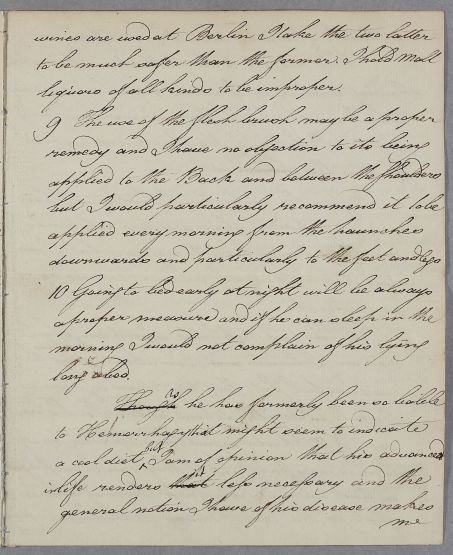 wines are used at Berlin I take the two latter
to be much safer than the former. I hold Malt
liquors of all kinds to be improper.
9 The use of the flesh brush may be a proper
remedy and I have no objection to its being
applied to the Back and between the Shoulders
but I would particularly recommend it to be
applied every morning from the haunches
downwards and particularly to the feet and legs
10 Going to bed early at night will be always
a proper measure and if he can sleep in the
morning I would not complain of his lying
long abed.
Though As he has formerly been so liable
to Hemorrhagy that might seem to indicate
a cool diet, but I am of opinion that his advanced
in life renders that it less necessary and the
general notion I have of his disease makes
me